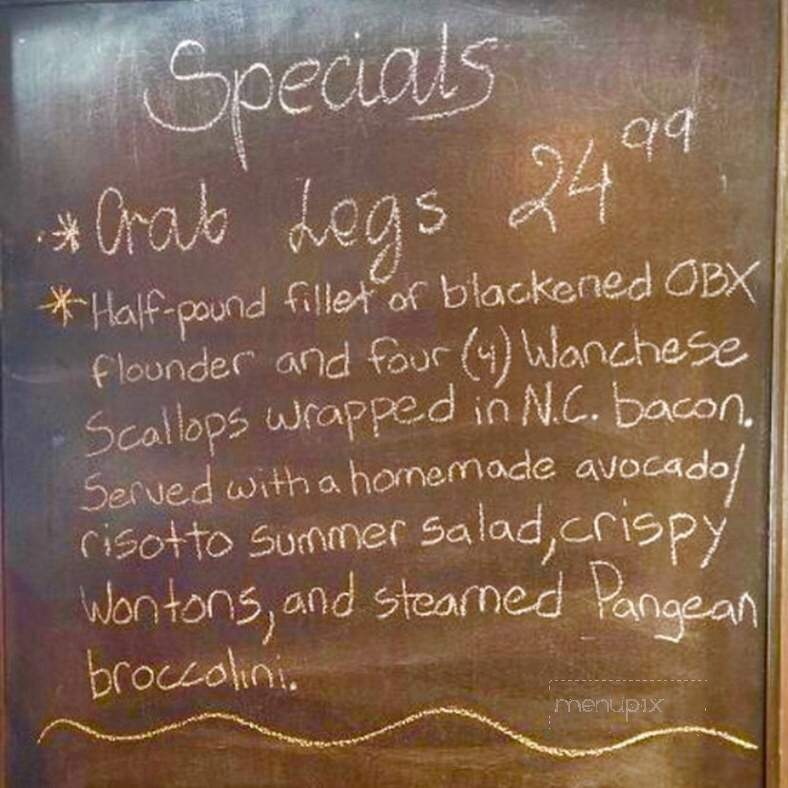 Specials
* Crab Legs 24 99
* Half-pound fillet of blackened OBX
flounder and four (4) Wanchese
Scallops wrapped in N.C. bacon.
Served with a homemade avocado/
risotto summer salad, crispy
Wontons, and steamed Pangean
broccolini.
menupix